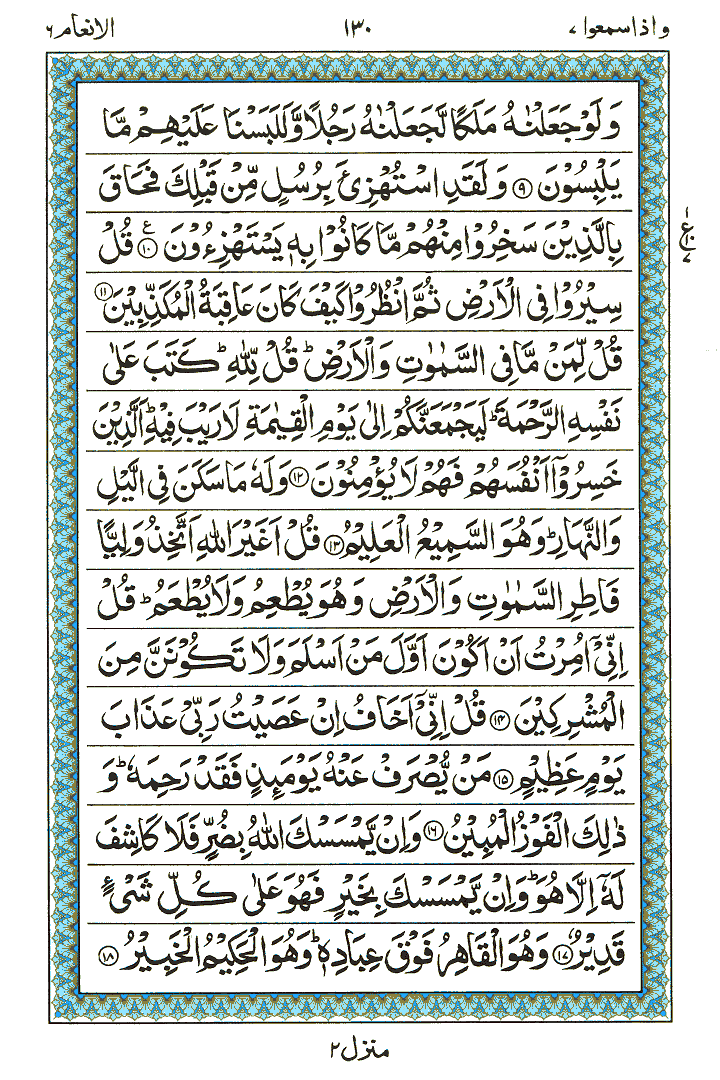 واذاسمعوا ٧ ١٣٠ الانعام ٦
وَلَوْ جَعَلْنٰهُ مَلَكًا لَّجَعَلْنٰهُ رَجُلًا وَّلَلَبَسْنَا عَلَيْهِمْ مَّا
يَلْبِسُوْنَ ۝٩ وَلَقَدِ اسْتُهْزِئَ بِرُسُلٍ مِّنْ قَبْلِكَ فَحَاقَ
بِالَّذِيْنَ سَخِرُوْا مِنْهُمْ مَّا كَانُوْا بِهٖ يَسْتَهْزِءُوْنَ ۝١٠ ع قُلْ
سِيْرُوْا فِى الْاَرْضِ ثُمَّ انْظُرُوْا كَيْفَ كَانَ عَاقِبَةُ الْمُكَذِّبِيْنَ ۝١١
قُلْ لِّمَنْ مَّا فِى السَّمٰوٰتِ وَالْاَرْضِ ؕ قُلْ لِّلّٰهِ ؕ كَتَبَ عَلٰى
نَفْسِهِ الرَّحْمَةَ ؕ لَيَجْمَعَنَّكُمْ اِلٰى يَوْمِ الْقِيٰمَةِ لَا رَيْبَ فِيْهِ ؕ اَلَّذِيْنَ
خَسِرُوْۤا اَنْفُسَهُمْ فَهُمْ لَا يُؤْمِنُوْنَ ۝١٢ وَلَهٗ مَا سَكَنَ فِى الَّيْلِ
وَالنَّهَارِ ؕ وَهُوَ السَّمِيْعُ الْعَلِيْمُ ۝١٣ قُلْ اَغَيْرَ اللّٰهِ اَتَّخِذُ وَلِيًّا
فَاطِرِ السَّمٰوٰتِ وَالْاَرْضِ وَهُوَ يُطْعِمُ وَلَا يُطْعَمُ ؕ قُلْ
اِنِّىْۤ اُمِرْتُ اَنْ اَكُوْنَ اَوَّلَ مَنْ اَسْلَمَ وَلَا تَكُوْنَنَّ مِنَ
الْمُشْرِكِيْنَ ۝١٤ قُلْ اِنِّىْۤ اَخَافُ اِنْ عَصَيْتُ رَبِّىْ عَذَابَ
يَوْمٍ عَظِيْمٍ ۝١٥ مَنْ يُّصْرَفْ عَنْهُ يَوْمَئِذٍ فَقَدْ رَحِمَهٗ ؕ وَ
ذٰلِكَ الْفَوْزُ الْمُبِيْنُ ۝١٦ وَاِنْ يَّمْسَسْكَ اللّٰهُ بِضُرٍّ فَلَا كَاشِفَ
لَهٗۤ اِلَّا هُوَ ؕ وَاِنْ يَّمْسَسْكَ بِخَيْرٍ فَهُوَ عَلٰى كُلِّ شَىْءٍ
قَدِيْرٌ ۝١٧ وَهُوَ الْقَاهِرُ فَوْقَ عِبَادِهٖ ؕ وَهُوَ الْحَكِيْمُ الْخَبِيْرُ ۝١٨
١
ع
١٠
٧
منزل ٢